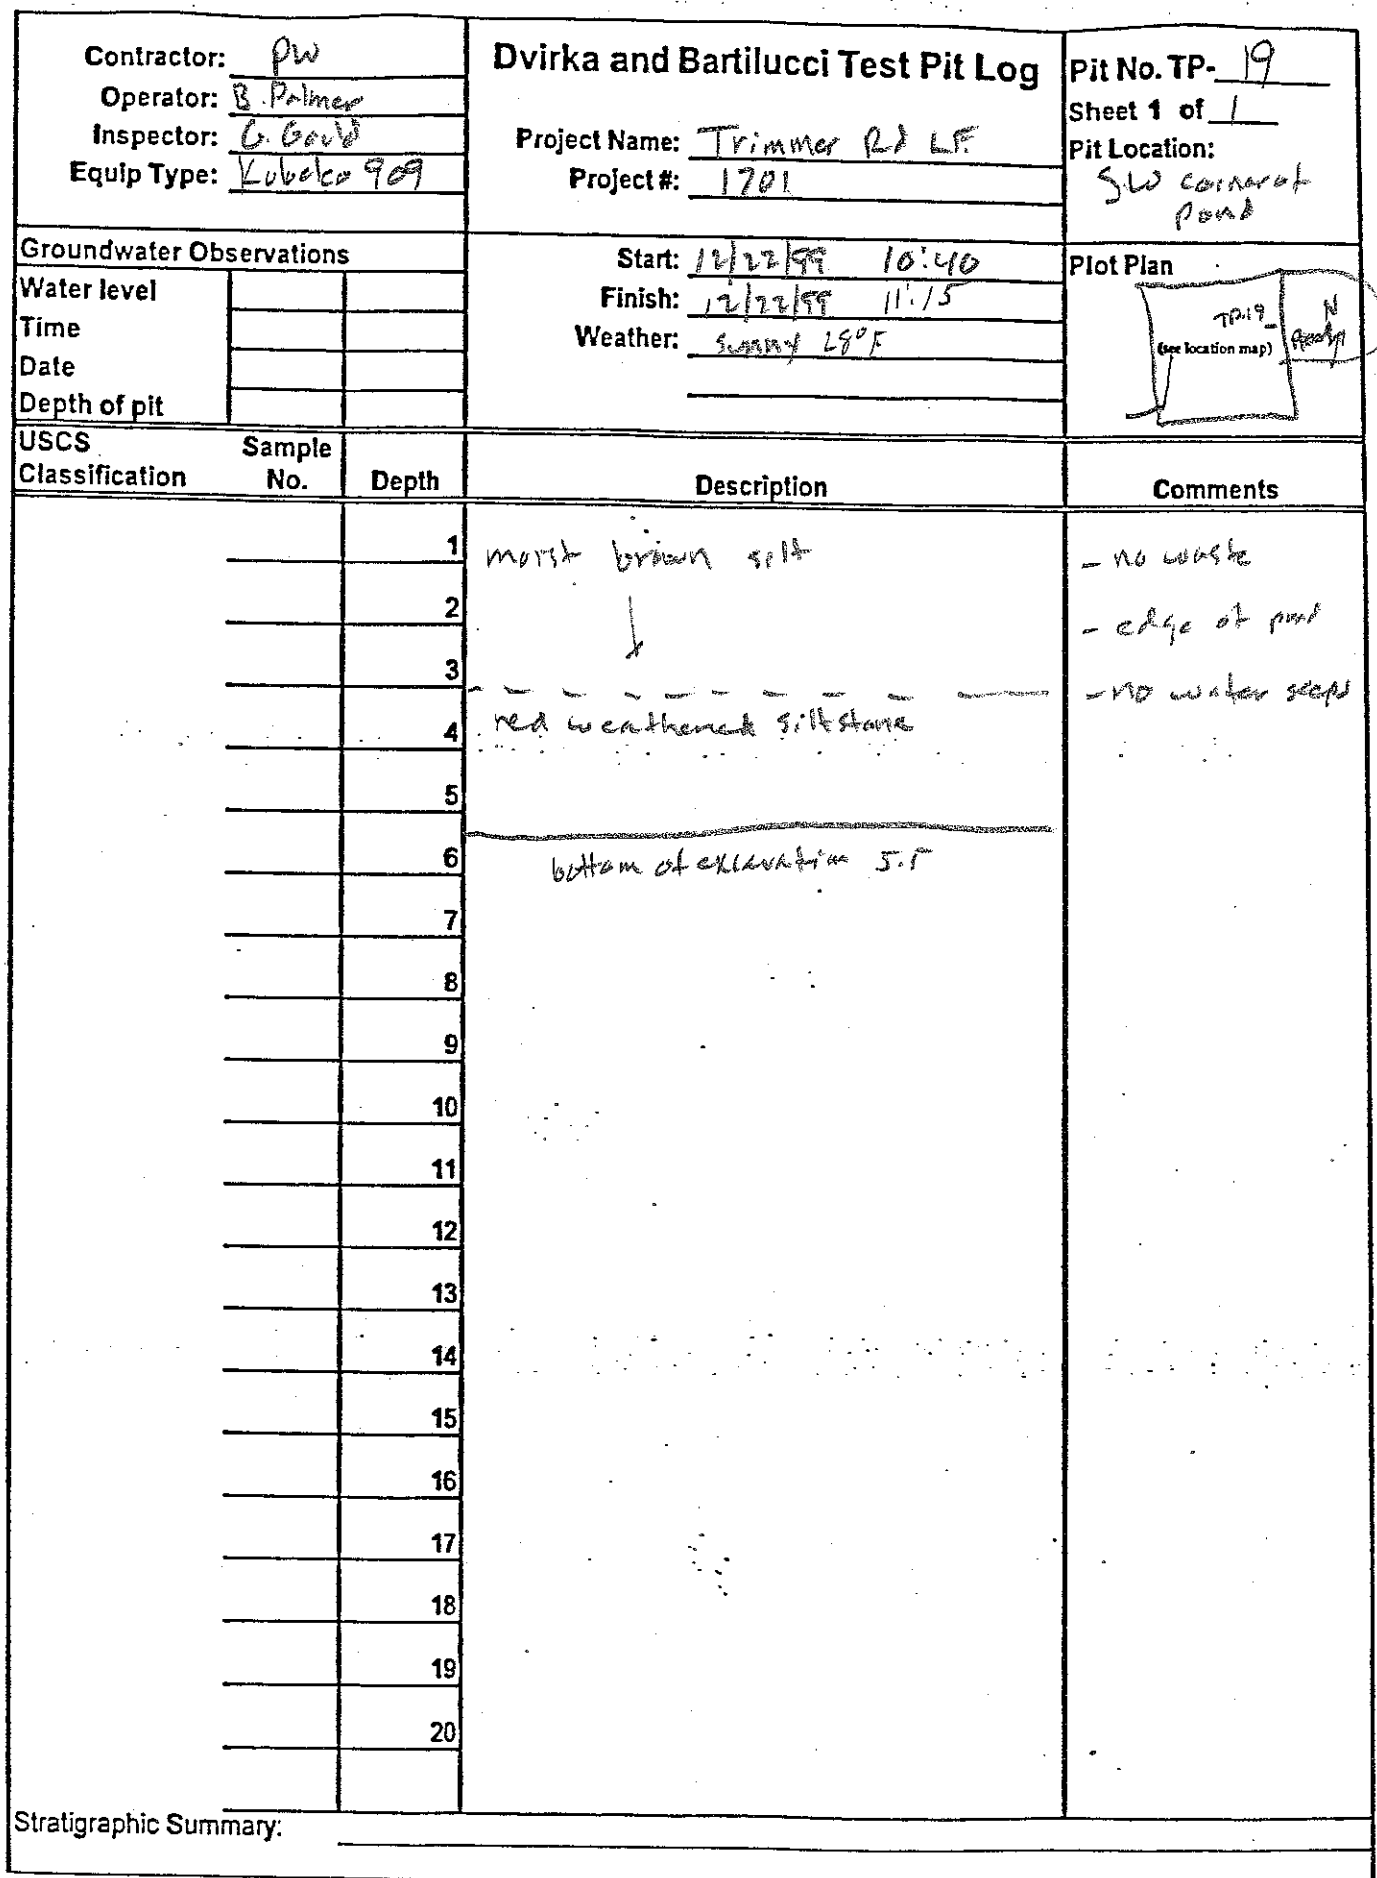 Contractor: PW
Operator: B. Palmer
Inspector: G. Gould
Equip Type: Kobelco 909
Dvirka and Bartilucci Test Pit Log
Project Name: Trimmer Rd LF.
Project #: 1701
Pit No. TP- 19
Sheet 1 of 1
Pit Location:
SW corner of
pond
Groundwater Observations
Water level
Time
Date
Depth of pit
Start: 12/22/99 10:40
Finish: 12/22/99 11:15
Weather: sunny 28°F
Plot Plan
TP-19
(see location map)
N
USCS
Classification
Sample
No.
Depth
Description
Comments
1 moist brown silt - no waste
2 - edge of pond
3 - no water seeps
4 red weathered siltstone
5
6 bottom of excavation 5.5
7
8
9
10
11
12
13
14
15
16
17
18
19
20
Stratigraphic Summary: